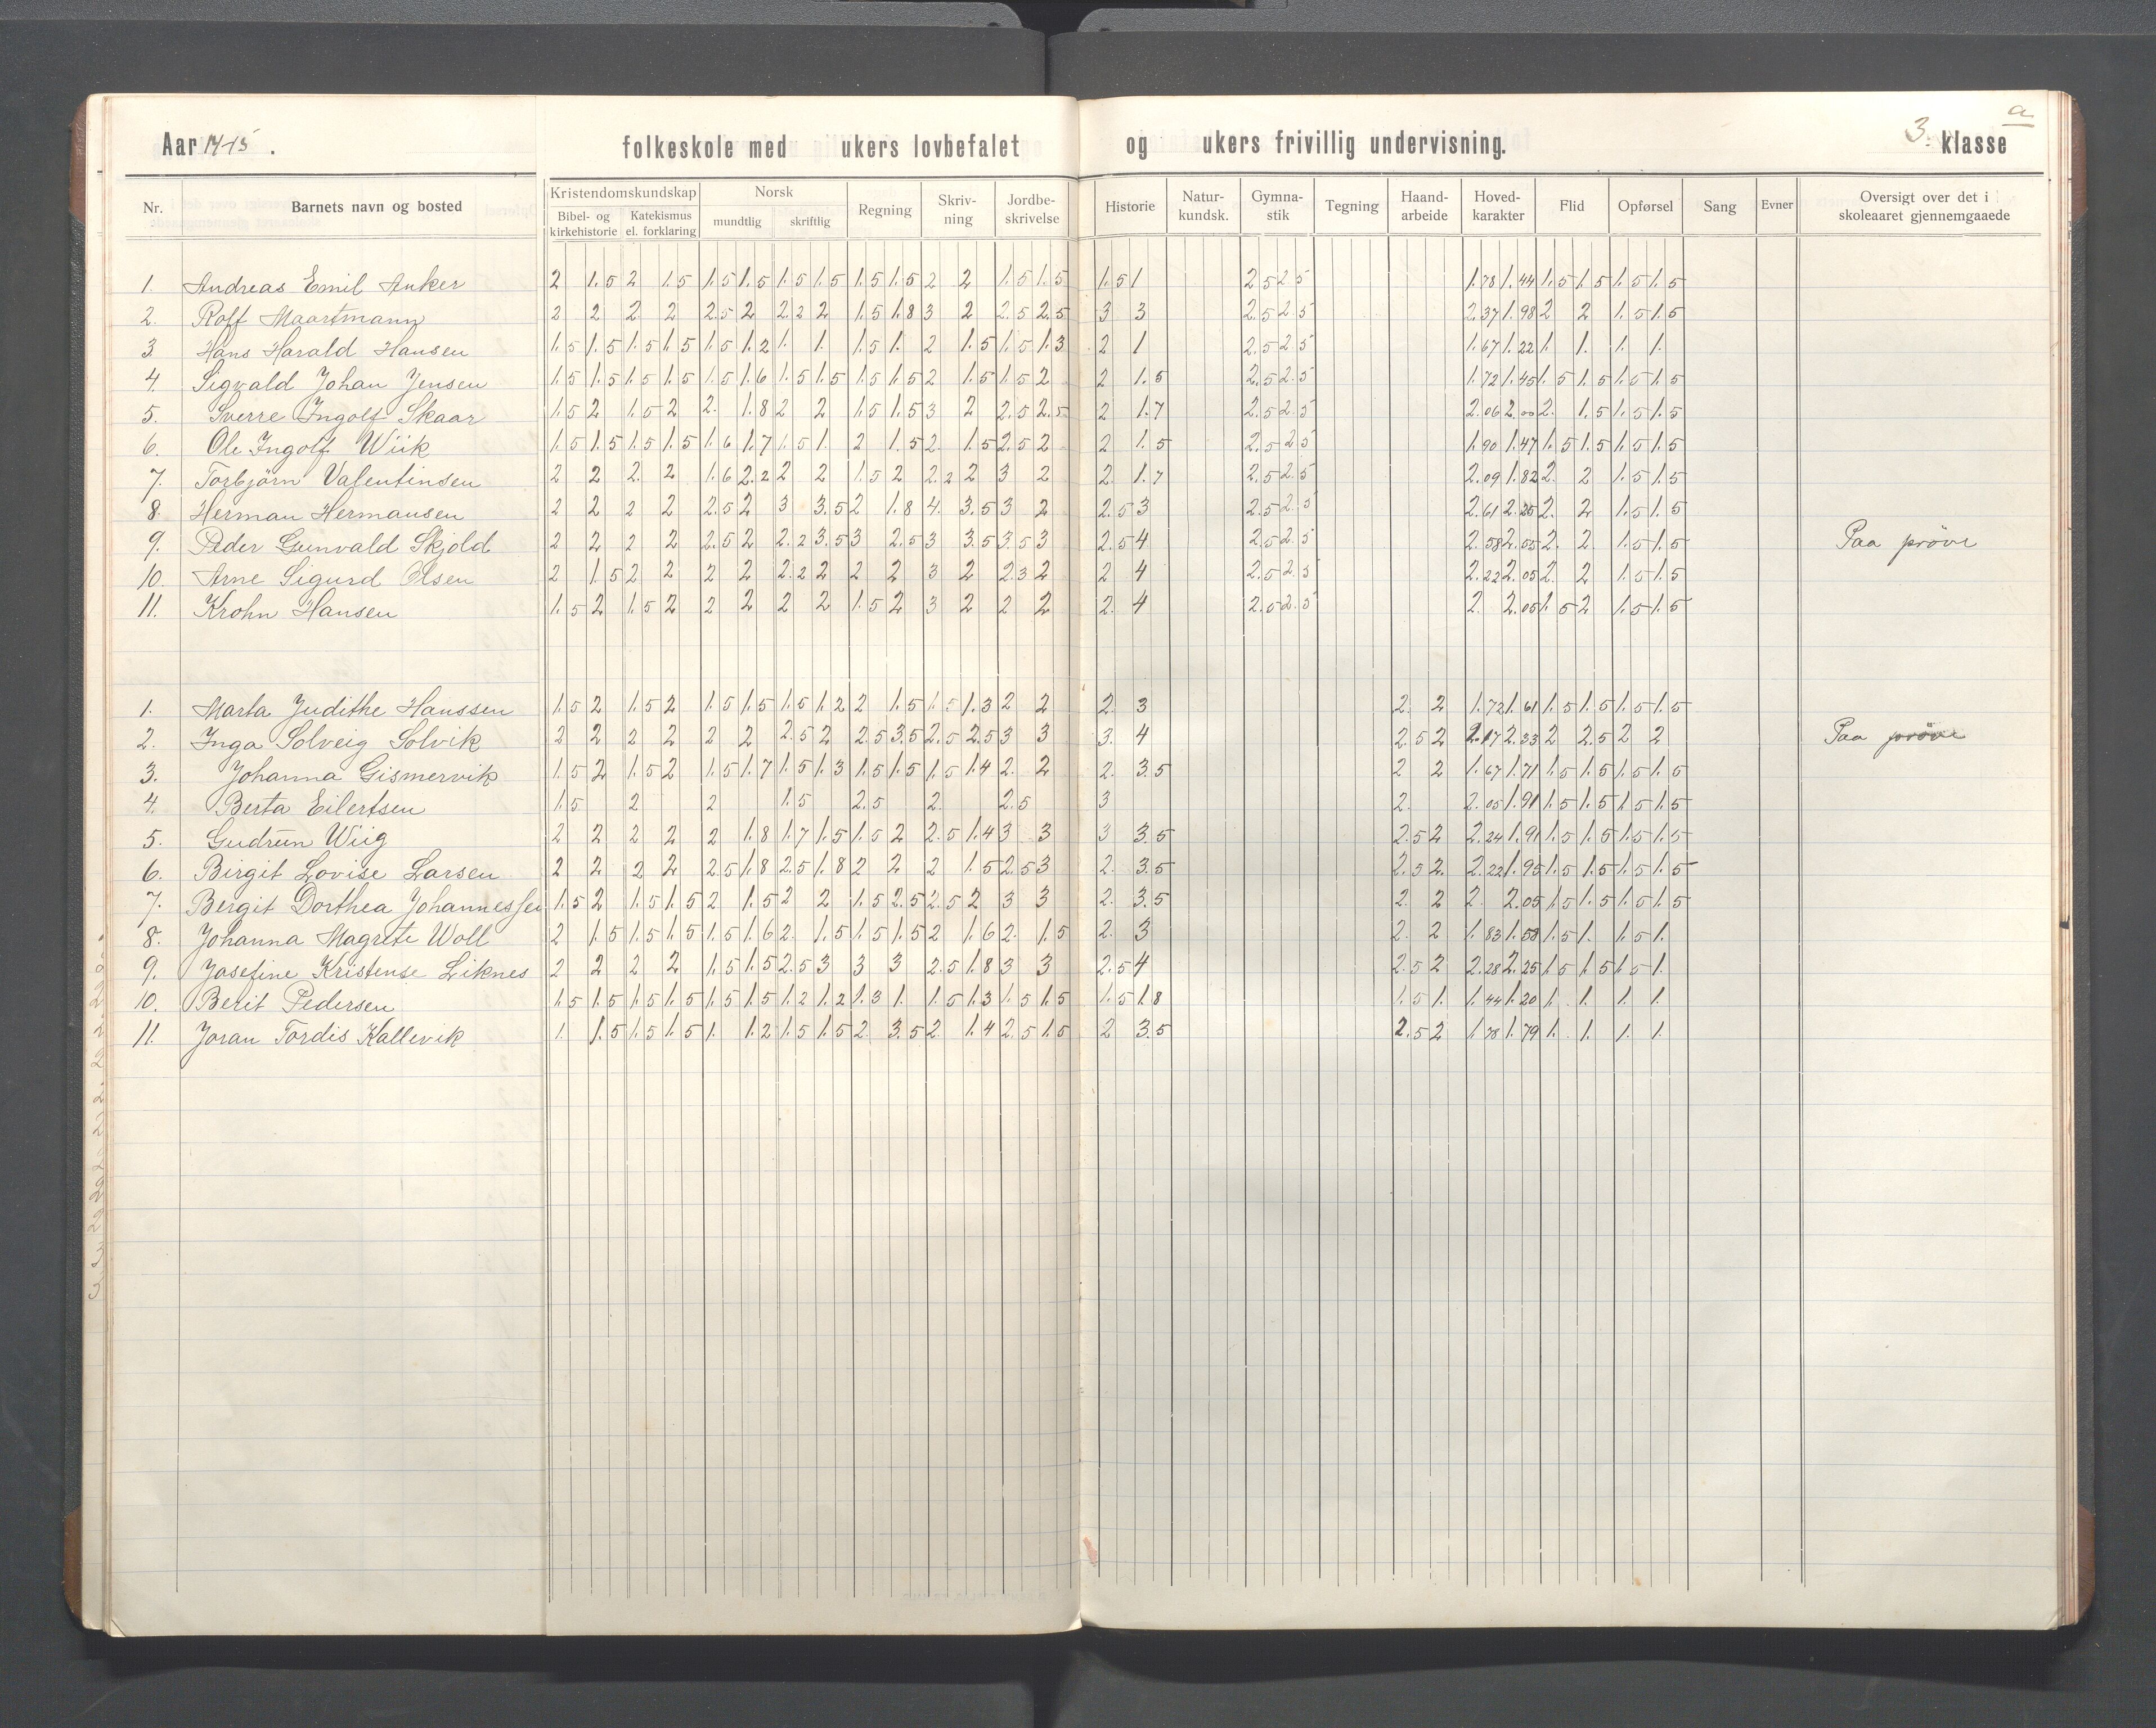 Aar 14-15. folkeskole med ukers lovbefalet og ukers frivillig undervisning. 3. a klasse
Nr. Barnets navn og bosted Kristendomskundskap Bibel- og kirkehistorie Katekismus el. forklaring Norsk mundtlig skriftlig Regning Skriv-ning Jordbe-skrivelse Historie Natur-kundsk. Gymna-stik Tegning Haand-arbeide Hoved-karakter Flid Opførsel Sang Evner Oversigt over det i skoleaaret gjennemgaaede
1. Andreas Emil Anker 2 1.5 2 1.5 1.5 1.5 1.5 1.5 1.5 1.5 2 2 1.5 1.5 1.5 1 2.5 2.5 1.78 1.44 1.5 1.5 1.5 1.5
2. Rolf Maartmann 2 2 2 2 2.5 2 2.2 2 1.5 1.8 3 2 2.5 2.5 3 3 2.5 2.5 2.37 1.98 2 2 1.5 1.5
3. Hans Harald Hansen 1.5 1.5 1.5 1.5 1.5 1.2 1. 1. 1.5 1. 2 1.5 1.5 1.3 2 1 2.5 2.5 1.67 1.22 1. 1. 1. 1.
4. Sigvald Johan Jensen 1.5 1.5 1.5 1.5 1.5 1.6 1.5 1.5 1.5 1.5 2 1.5 1.5 2 2 1.5 2.5 2.5 1.72 1.45 1.5 1.5 1.5 1.5
5. Sverre Ingolf Skaar 1.5 2 1.5 2 2. 1.8 2 2 1.5 1.5 3 2 2.5 2.5 2 1.7 2.5 2.5 2.06 2.00 2. 1.5 1.5 1.5
6. Ole Ingolf Wiik 1.5 1.5 1.5 1.5 1.6 1.7 1.5 1. 2 1.5 2. 1.5 2.5 2 2 1.5 2.5 2.5 1.90 1.47 1.5 1.5 1.5 1.5
7. Torbjörn Valentinsen 2 2 2. 2 1.6 2.2 2 2 1.5 2 2.2 2 3 2 2. 1.7 2.5 2.5 2.09 1.82 2. 2 1.5 1.5
8. Herman Hermansen 2 2 2 2 2.5 2 3 3.5 2 1.8 4. 3.5 3 2 2.5 3 2.5 2.5 2.61 2.25 2. 2 1.5 1.5
9. Peder Gunvald Skjold 2 2 2 2 2.5 2 2.2 3.5 3 2.5 3 3.5 3.5 3 2.5 4 2.5 2.5 2.58 2.65 2. 2. 1.5 1.5 Paa pröve
10. Arne Sigurd Olsen 2 1.5 2 2 2 2 2.2 2 2 2 3 2 2.3 2 2 4 2.5 2.5 2.22 2.05 2. 2 1.5 1.5
11. Krohn Hansen 1.5 2 1.5 2 2 2 2 2 1.5 2 3 2 2 2 2. 4 2.5 2.5 2. 2.05 1.5 2 1.5 1.5
1. Marta Judithe Hanssen 1.5 2 1.5 2 1.5 1.5 1.5 1.2 2 1.5 1.5 1.3 2 2 2. 3 2. 2 1.72 1.61 1.5 1.5 1.5 1.5
2. Inga Solveig Solvik 2 2 2 2 2 2 2.5 2 2.5 3.5 2.5 2.5 3 3 3. 4 2.5 2 2.17 2.33 2 2.5 2 2 Paa pröve
3. Johanna Gismervik 1.5 2 1.5 2 1.5 1.7 1.5 1.3 1.5 1.5 1.5 1.4 2. 2 2. 3.5 2 2 1.67 1.71 1.5 1.5 1.5 1.5
4. Berta Eilertsen 1.5 2 2 1.5 2.5 2. 2.5 3 2. 2.05 1.91 1.5 1.5 1.5 1.5
5. Gudrun Wiig 2 2 2 2 2 1.8 1.7 1.5 1.5 2 2.5 1.4 3 3 3 3.5 2.5 2 2.24 1.91 1.5 1.5 1.5 1.5
6. Birgit Lovise Larsen 2 2 2 2 2.5 1.8 2.5 1.8 2 2 2 1.5 2.5 3 2. 3.5 2.5 2. 2.22 1.95 1.5 1.5 1.5 1.5
7. Bergit Dorthea Johannessen 1.5 2 1.5 1.5 2 1.5 2 2 1.5 2.5 2.5 2 3 3 2. 3.5 2. 2 2. 2.05 1.5 1.5 1.5 1.5
8. Johanna Magrete Woll 2 1.5 1.5 1.5 1.5 1.6 2. 1.5 1.5 1.5 2 1.6 2. 1.5 2. 3 2. 2 1.83 1.58 1.5 1. 1.5 1.
9. Josefine Kristense Liknes 2 2 2 2 1.5 1.5 2.5 3 3 3 2.5 1.8 3 3 2.5 4 2.5 2 2.28 2.25 1.5 1.5 1.5 1.
10. Berit Pedersen 1.5 1.5 1.5 1.5 1.5 1.5 1.2 1.2 1.3 1. 1.5 1.3 1.5 1.5 1.5 1.8 1.5 1. 1.44 1.20 1. 1. 1. 1.
11. Joran Tordis Kallevik 1. 1.5 1.5 1.5 1. 1.2 1.5 1.5 2. 3.5 2. 1.4 2.5 1.5 2 3.5 2.5 2 1.78 1.79 1. 1. 1. 1.